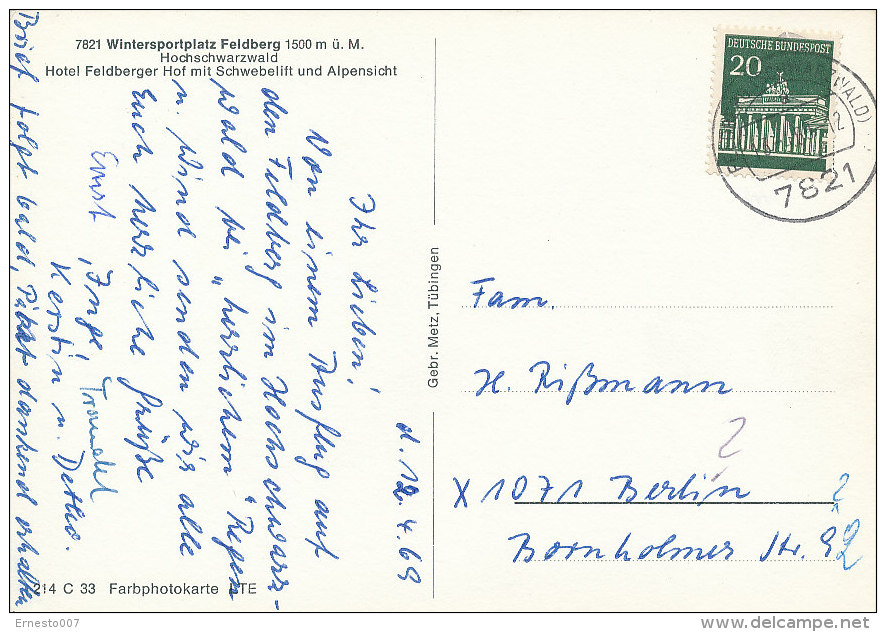 7821 Wintersportplatz Feldberg 1500 m ü. M.
Hochschwarzwald
Hotel Feldberger Hof mit Schwebelift und Alpensicht
d. 12.4.69
Ihr Lieben!
Von einem Ausflug auf
den Feldberg im Hochschwarz-
wald bei "herrlichem" Regen
u. Wind senden wir alle
Euch herzliche Grüße
Ernst, Inge, Traudel
Kerstin u. Detlev.
Brief folgt bald, Paket dankend erhalten
Gebr. Metz, Tübingen
DEUTSCHE BUNDESPOST
20
7821
Fam.
H. Rißmann
X 1071 Berlin
Bornholmer Str. 92
214 C 33 Farbphotokarte
Ernesto007
www.delcampe.net